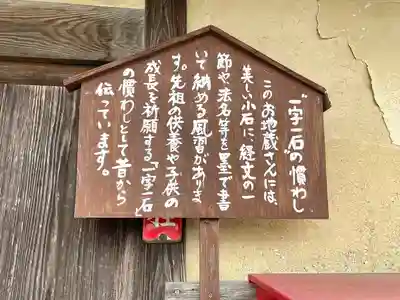 一字一石の慣わし
このお地蔵さんには、
美しい小石に、経文の一
節や、法名等を墨で書
いて納める風習がありま
す。先祖の供養や子供の
成長を祈願する「一字一石」
の慣わしとして昔から
伝っています。